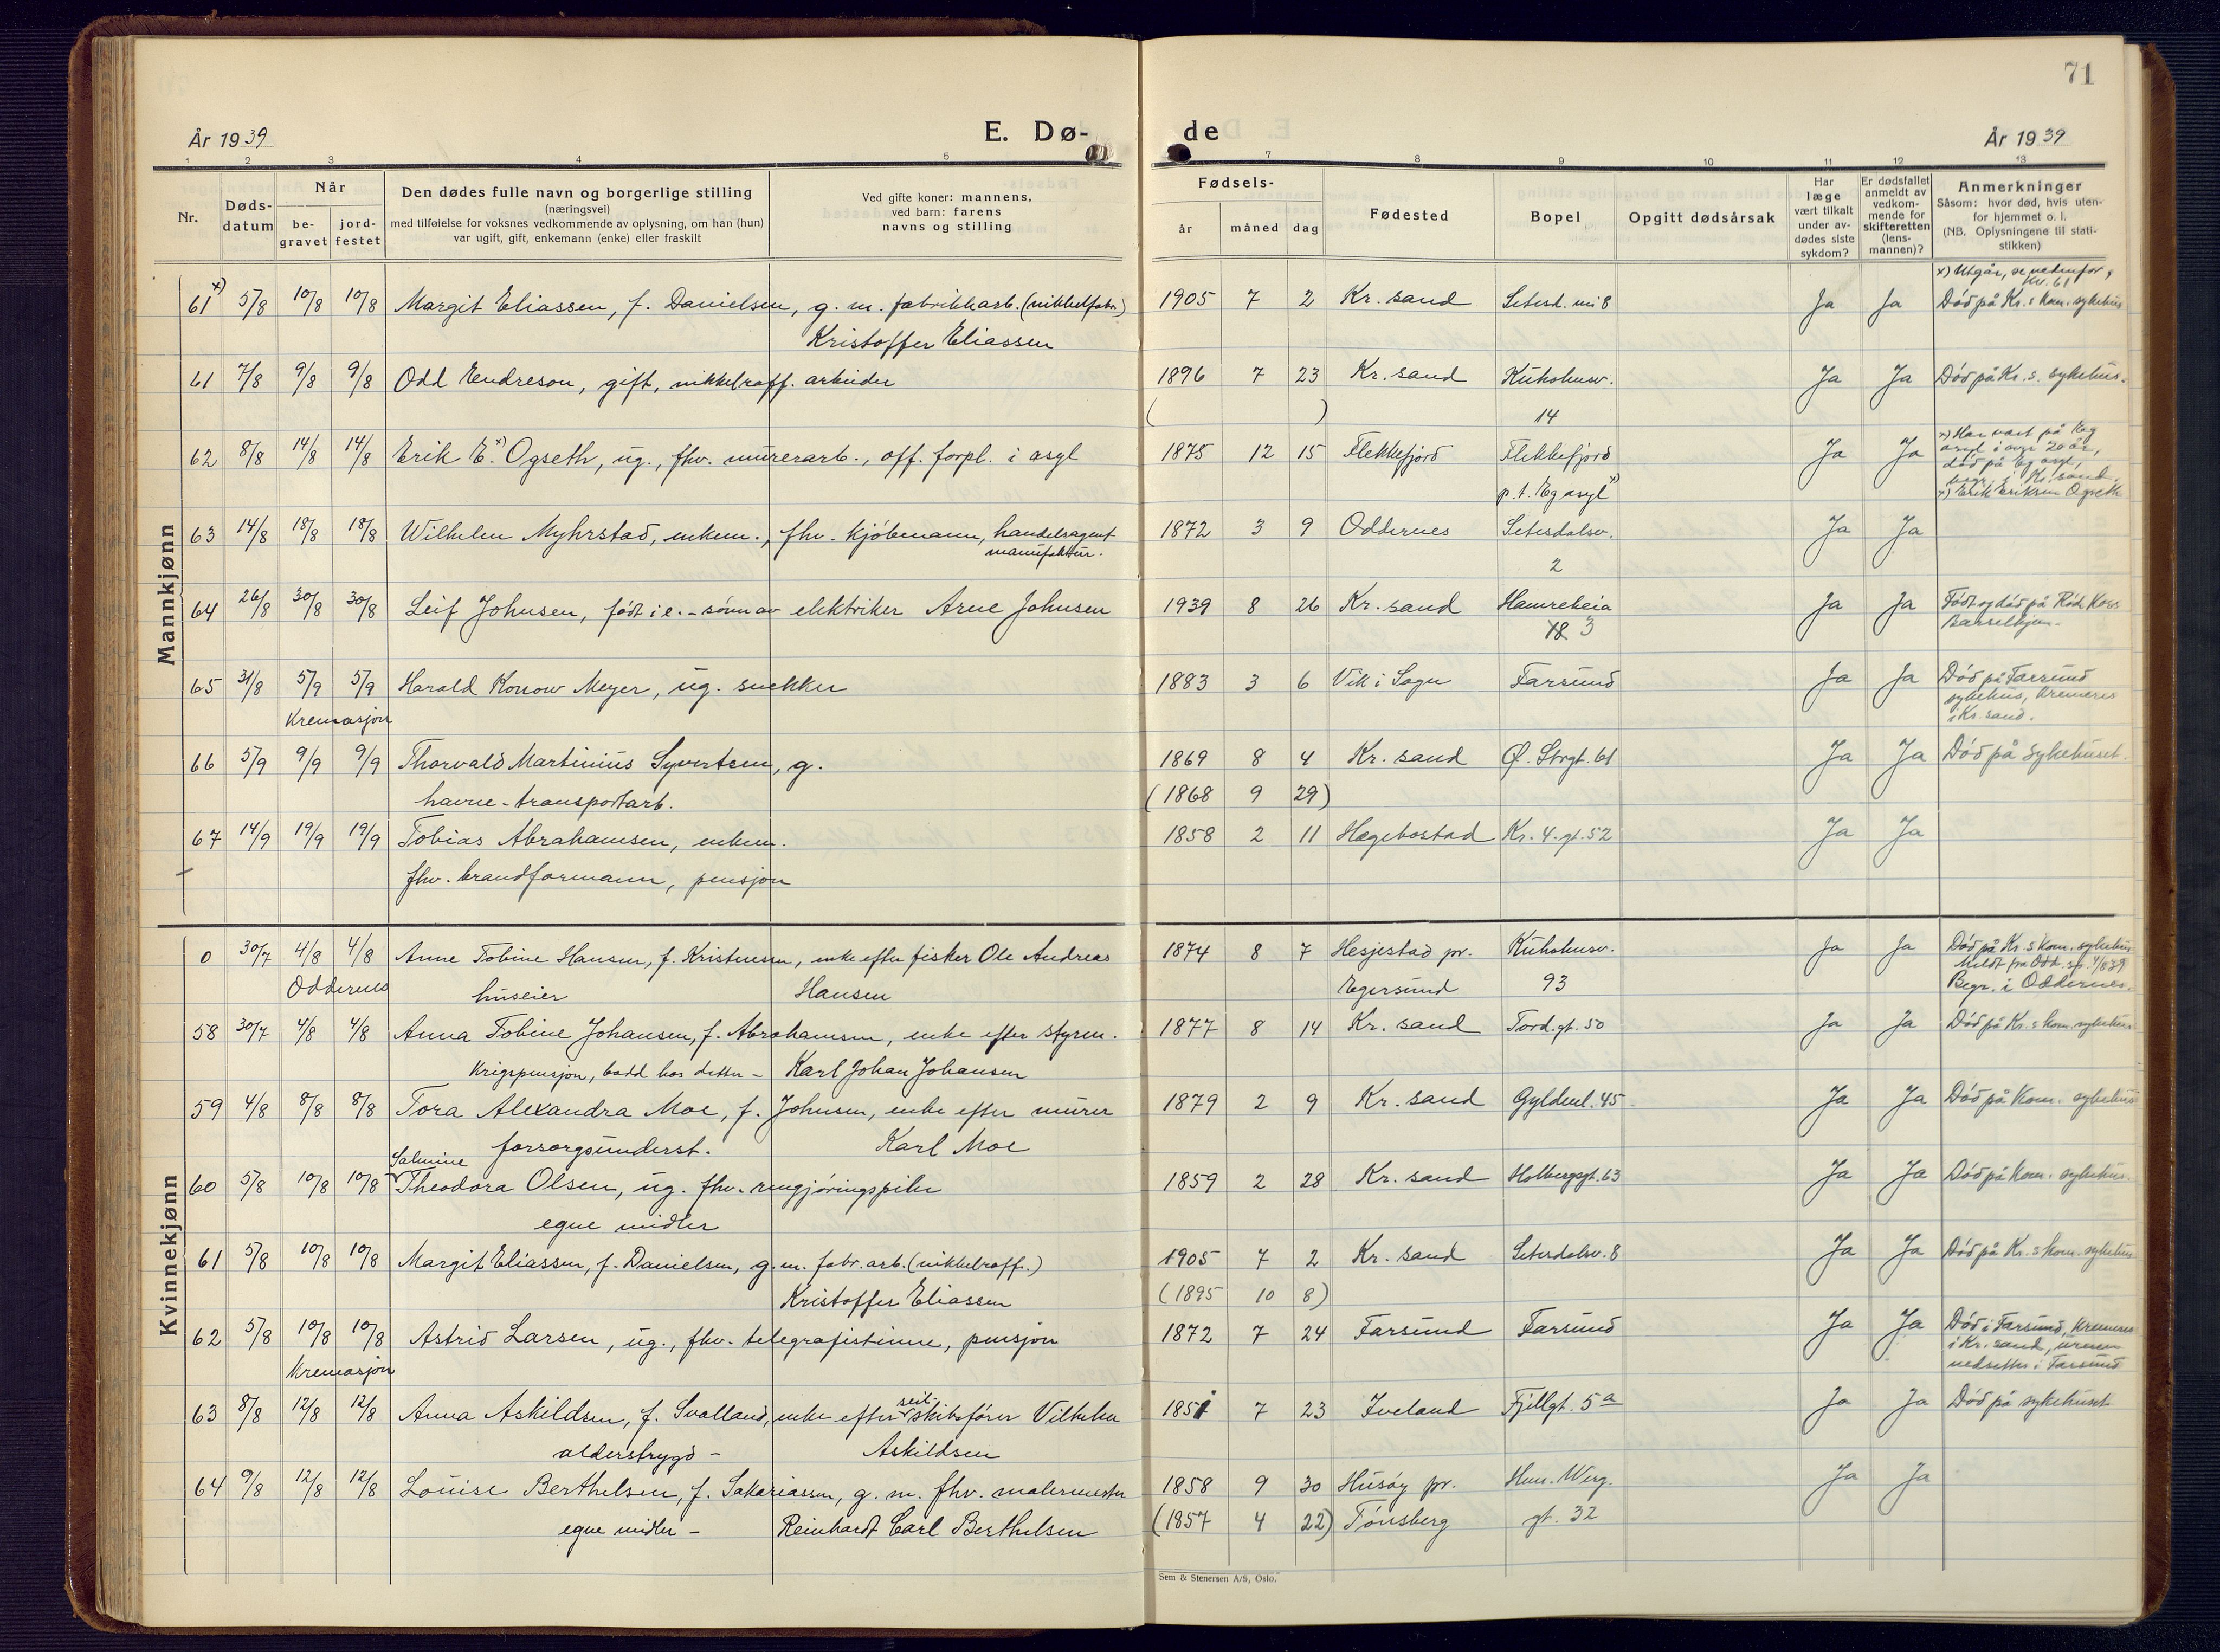 71
År 1939
E. Dø-
de
År 1939
1 2 3 4 5 7 8 9 10 11 12 13
Nr.
Døds-
datum
Når
be-
gravet
jord-
festet
Den dødes fulle navn og borgerlige stilling
(næringsvei)
med tilføielse for voksnes vedkommende av oplysning, om han (hun)
var ugift, gift, enkemann (enke) eller fraskilt
Ved gifte koner: mannens,
ved barn: farens
navns og stilling
Fødsels-
år måned dag
Fødested
Bopel
Opgitt dødsårsak
Har
læge
vært tilkalt
under av-
dødes siste
sykdom?
Er dødsfallet
anmeldt av
vedkom-
mende for
skifteretten
(lens-
mannen)?
Anmerkninger
Såsom: hvor død, hvis uten-
for hjemmet o. l.
(NB. Oplysningene til stati-
stikken)
Mannkjønn
x) Utgår, se nedenfor,
Kv. 61
61 x) 5/8 10/8 10/8 Margit Eliassen, f. Danielsen, g. m. fabrikkarb. (nikkelfabr.) 1905 7 2 Kr. sand Setesd. 8 Ja Ja Død på Kr.s kom. sykehus
Kristoffer Eliassen
61 7/8 9/8 9/8 Odd Endreson, gift, nikkelraff. arbeider 1896 7 23 Kr. sand Kuholmsv. Ja Ja Død på Kr.s. sykehus.
( ) 14
62 8/8 14/8 14/8 Erik E. x) Ogseth, ug., fhv. murerarb., off. forpl. i asyl 1875 12 15 Flekkefjord Flekkefjord Ja Ja x) Har vært på Eg
asyl i over 20 år,
død på Eg asyl,
begr. i Kr.sand.
p. t. Eg asyl x) x) Erik Eriksen Ogseth
63 14/8 18/8 18/8 Wilhelm Myhrstad, enkem., fhv. kjøbmann, handelsagent 1872 3 9 Oddernes Setesdalsv. Ja Ja
manufaktur. 2
64 26/8 30/8 30/8 Leif Johnsen, født i e. - sønn av elektriker Arne Johnsen 1939 8 26 Kr. sand Hamreheia Ja Ja Født og død på Røde Kors
18 3 Barselhjem -
65 31/8 5/9 5/9 Harald Konow Meyer, ug. snekker 1883 3 6 Vik i Sogn Farsund Ja Ja Død på Farsund
Kremasjon sykehus, kremeres
i Kr. sand.
66 5/9 9/9 9/9 Thorvald Martinius Syvertsen, g. 1869 8 4 Kr. sand Ø. Strgt. 61 Ja Ja Død på sykehuset.
havne-transportarb. (1868 9 29)
67 14/9 19/9 19/9 Tobias Abrahamsen, enkem. 1858 2 11 Hægebostad Kr. 4. gt. 52 Ja Ja
fhv. brandformann, pensjon
Kvinnekjønn
0 30/7 4/8 4/8 Anne Tobine Hansen, f. Kristensen, enke efter fisker Ole Andreas 1874 8 7 Hesjestad pr. Kuholmsv. Ja Ja Død på Kr.s kom. sykehus
Meldt fra Odd. sp. 4/8 39
Oddernes huseier Hansen Egersund 93 Begr. i Oddernes.
58 30/7 4/8 4/8 Anna Tobine Johansen, f. Abrahamsen, enke efter styrm. 1877 8 14 Kr. sand Tord. gt. 50 Ja Ja Død på Kr.s kom. sykehus
Krigspensjon, bodd hos datter - Karl Johan Johansen
59 4/8 8/8 8/8 Tora Alexandra Moe, f. Johnsen, enke efter murer 1879 2 9 Kr. sand Gyldenl. 45 Ja Ja Død på kom. sykehus
forsorgsunderst. Karl Moe
Salmine
60 5/8 10/8 10/8 Theodora Olsen, ug. fhv. rengjøringspike 1859 2 28 Kr. sand Holbergsgt. 63 Ja Ja Død på kom. sykehus.
egne midler
61 5/8 10/8 10/8 Margit Eliassen, f. Danielsen, g. m. fabr. arb. (nikkelraff.) 1905 7 2 Kr. sand Setesdalsv. 8 Ja Ja Død på Kr.s kom. sykehus
Kristoffer Eliassen (1895 10 8)
62 5/8 10/8 10/8 Astrid Larsen, ug., fhv. telegrafistinne, pensjon 1872 7 24 Farsund Farsund Ja Ja Død i Farsund, kremeres
Kremasjon i Kr. sand, urnen
nedsettes i Farsund
63 8/8 12/8 12/8 Anna Askildsen, f. Svalland, enke efter seil-skibsfører Vilhelm 1851 7 23 Iveland Fjellgt. 5a Ja Ja Død på sykehuset
alderstrygd - Askildsen
64 9/8 12/8 12/8 Louise Berthelsen, f. Sakariassen, g. m. fhv. malermester 1858 9 30 Husøy pr. Hen. Werg. Ja Ja
egne midler - Reinhardt Carl Berthelsen (1857 4 22) Tønsberg gt. 32
Sem & Stenersen A/S, Oslo.